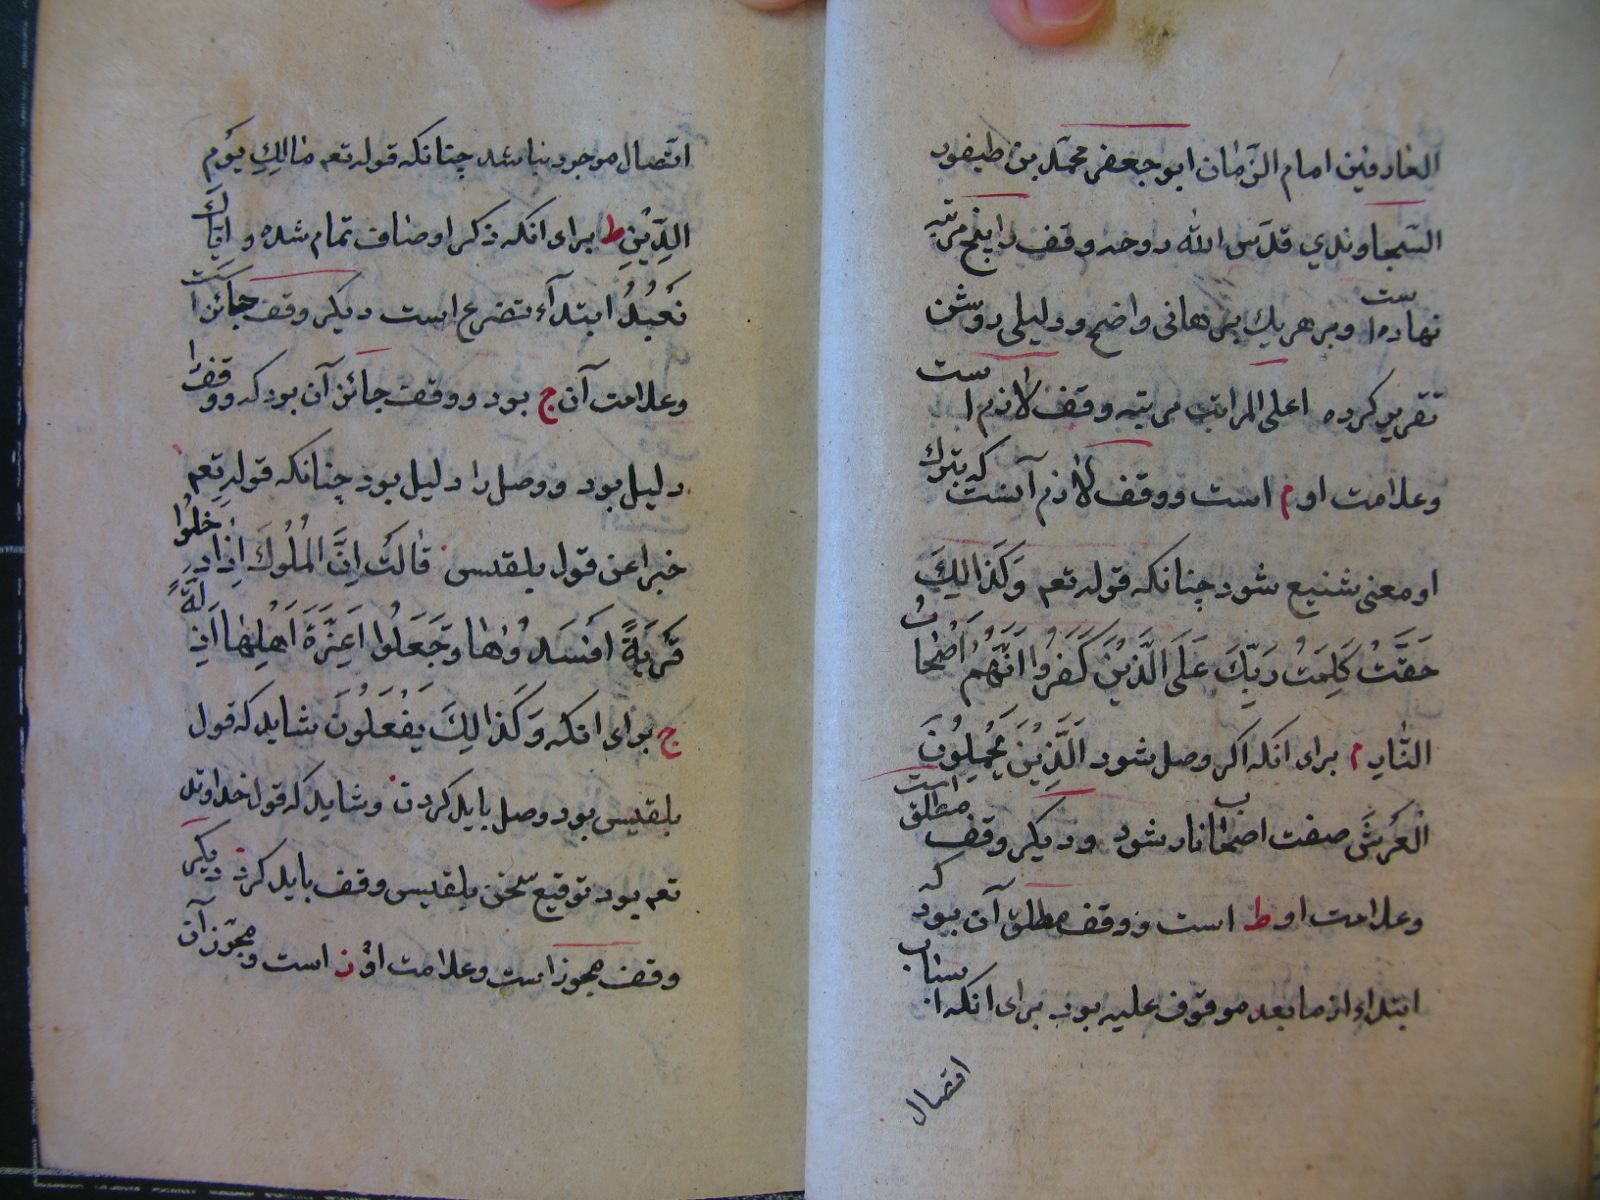 العارفين امام الزمان ابو جعفر محمد بن طيفور
السجاوندي قدس الله روحه وقف را پنج مرتبه
نهاده است و بر هر يك برهانى واضح و دليلى روشن
تقرير كرده اعلى المراتب مرتبه وقف لازم است
وعلامت او م است ووقف لازم آنست كه بترك
او معنى شنيع شود چنانكه قوله تعم وَكَذَالِكَ
حَقَّتْ كَلِمَتُ رَبِّكَ عَلَى الَّذِيْنَ كَفَرُوا اَنَّهُمْ اَصْحَابُ
النَّارِ م براى انكه اكر وصل شود اَلَّذِيْنَ يَحْمِلُوْنَ
الْعَرْشَ صفت اصحاب نار شود وديكر وقف مطلق است
وعلامت او ط است ووقف مطلق آن بود كه
ابتداء از ما بعد موقوف عليه بود براى انكه اسباب
اتصال
اتّصال موجود نباشد چنانكه قوله تعم مَالِكِ يَوْمِ
الدِّيْنِ ط براى انكه ذكر اوصاف تمام شده و اِيَّاكَ
نَعْبُدُ ابتدآء تضرع است ديكر وقف جائز است
وعلامت آن ج بود ووقف جائز آن بود كه وقف را
دليل بود ووصل را دليل بود چنانكه قوله تعم
خبرا عن قول بلقيس قَالَتْ اِنَّ الْمُلُوكَ اِذَا دَخَلُوا
قَرْيَةً اَفْسَدُوْهَا وَجَعَلُوا اَعِزَّةَ اَهْلِهَا اَذِلَّةً
ج براى انكه وَكَذَالِكَ يَفْعَلُوْنَ شايد كه قول
بلقيس بود وصل بايد كردن وشايد كه قول خداوند
تعم بود توقيع سخن بلقيس وقف بايد كرد ديكر
وقف مجوز است وعلامت او ز است ومجوّز آن